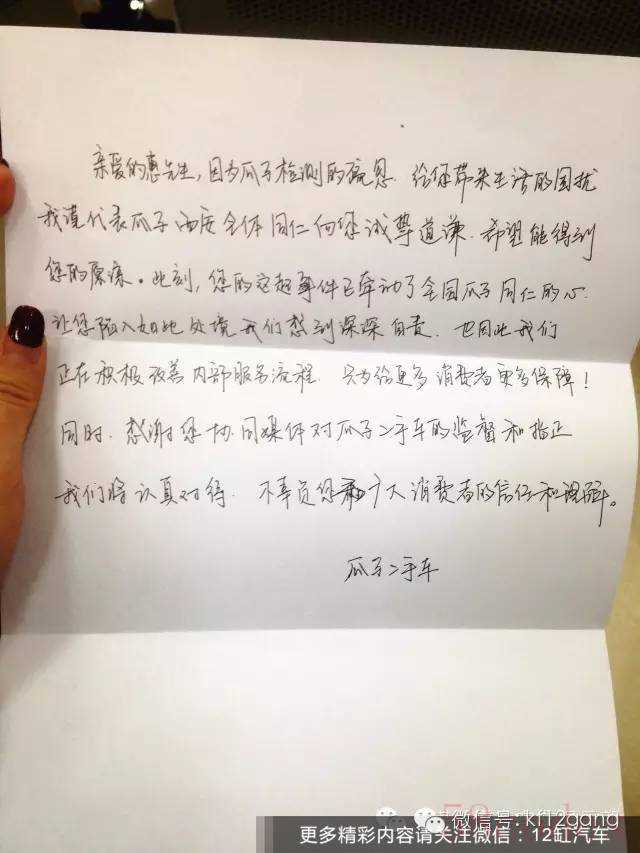 亲爱的惠先生，因为瓜子检测的疏忽.给您带来生活的困扰
我谨代表瓜子西安全体同仁向您诚挚道谦.希望能得到
您的原谅。此刻，您的这起事件已牵动了全国瓜子同仁的心.
让您陷入如此处境我们感到深深自责.也因此我们
正在积极改善内部服务流程.只为给更多消费者更多保障！
同时.感谢您协同媒体对瓜子二手车的监督和指正
我们将认真对待.不辜负您和广大消费者的信任和理解。
瓜子二手车
微信号: kn12gang
更多精彩内容请关注微信：12缸汽车